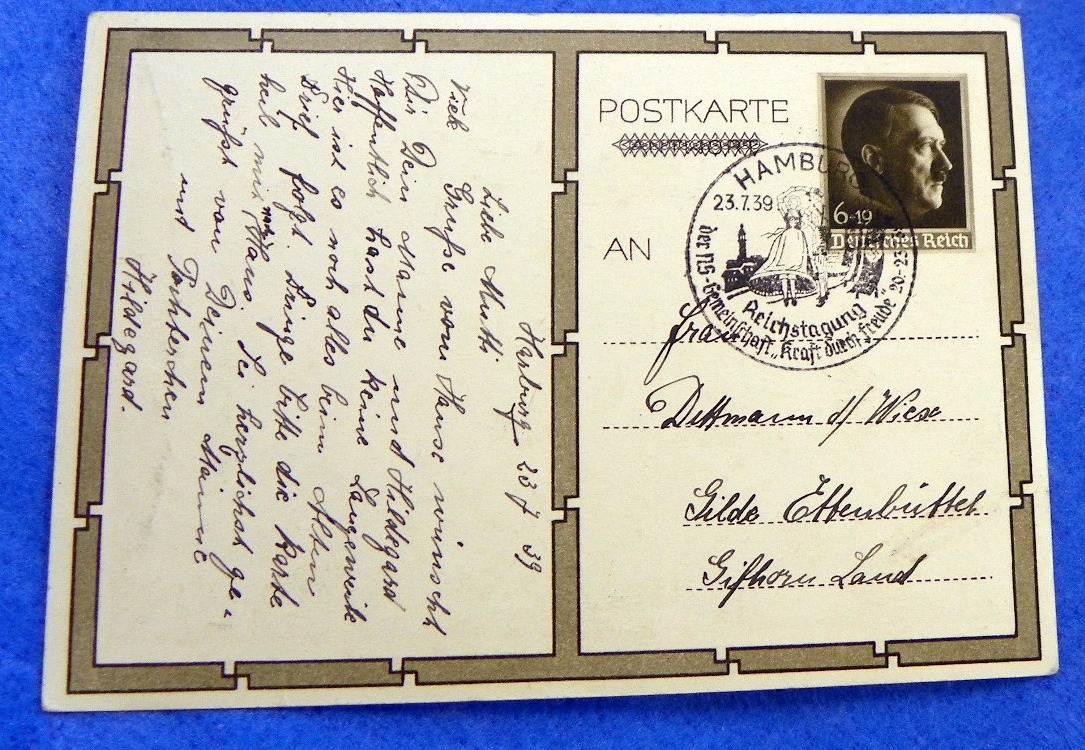 Harburg 23 7 39
Liebe Mutti
Viele Grüße vom Hause wünscht
Dir Dein Manne und Hildegard
Hoffentlich hast du keine Langeweile
Hier ist es noch alles beim Alten
Brief folgt. Bringe bitte die Karte
mit nach Haus. Sei herzlichst ge-
grüßt von Deinem Manne
und Töchterchen
Hildegard.
POSTKARTE
AN
HAMBURG
23.7.39
20-23
der NS-Gemeinschaft „Kraft durch Freude“
Reichstagung
6+19
Deutsches Reich
Frau
Dettmann d/ Wiese
Gilde Ettenbüttel
Gifhorn Land